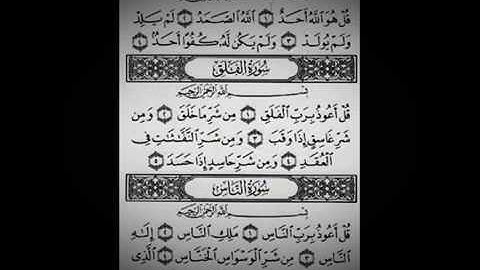 قُلْ هُوَ ٱللَّهُ أَحَدٌ ١ ٱللَّهُ ٱلصَّمَدُ ٢ لَمْ يَلِدْ
وَلَمْ يُولَدْ ٣ وَلَمْ يَكُن لَّهُۥ كُفُوًا أَحَدٌۢ ٤
سُورَةُ ٱلْفَلَقِ
بِسْمِ ٱللَّهِ ٱلرَّحْمَٰنِ ٱلرَّحِيمِ
قُلْ أَعُوذُ بِرَبِّ ٱلْفَلَقِ ١ مِن شَرِّ مَا خَلَقَ ٢ وَمِن
شَرِّ غَاسِقٍ إِذَا وَقَبَ ٣ وَمِن شَرِّ ٱلنَّفَّٰثَٰتِ فِى
ٱلْعُقَدِ ٤ وَمِن شَرِّ حَاسِدٍ إِذَا حَسَدَ ٥
سُورَةُ ٱلنَّاسِ
بِسْمِ ٱللَّهِ ٱلرَّحْمَٰنِ ٱلرَّحِيمِ
قُلْ أَعُوذُ بِرَبِّ ٱلنَّاسِ ١ مَلِكِ ٱلنَّاسِ ٢ إِلَٰهِ
ٱلنَّاسِ ٣ مِن شَرِّ ٱلْوَسْوَاسِ ٱلْخَنَّاسِ ٤ ٱلَّذِى